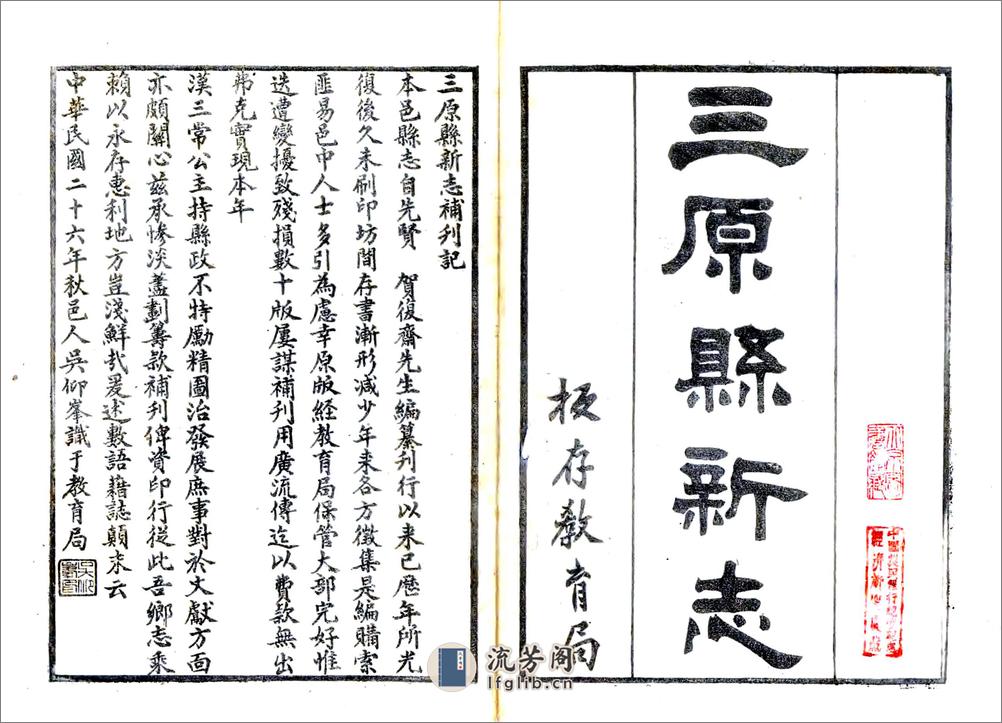 三原縣新志
板存教育局
三原縣新志補刊記
本邑縣志自先賢 賀復齋先生編纂刊行以来已歷年所光
復後久未刷印坊間存書漸形減少年来各方徵集是編購索
匪易邑中人士多引為慮幸原版經教育局保管大部完好惟
迭遭變擾致殘損數十版屢謀補刊用廣流傳迄以費款無出
弗克實現本年
漢三常公主持縣政不特勵精圖治發展庶事對於文獻方面
亦頗關心兹承慘淡藎劃籌款補刊俾資印行從此吾鄉志乘
賴以永存惠利地方豈淺鮮㢤爰述數語藉誌顛末云
中華民國二十六年秋邑人吳仰峯識于教育局
流芳阁
lfglib.cn